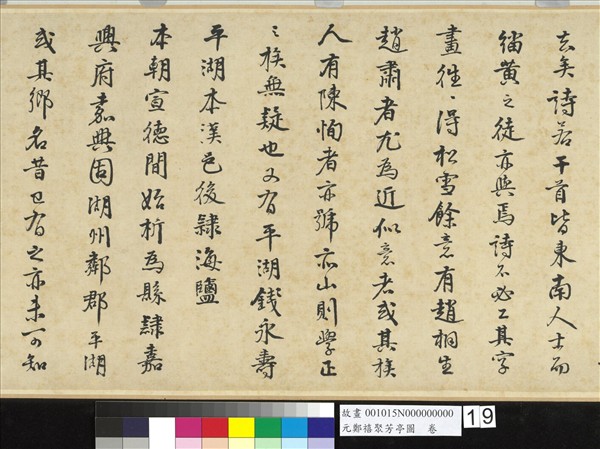 去矣詩若干首皆東南人士而
緇黃之徒亦與焉詩不必工其字
畫往々得松雪餘意有趙桐生
趙肅者尤為近似意者或其族
人有陳恂者亦號亦山則學正
之族無疑也又有平湖錢永壽
平湖本漢邑後隸海鹽
本朝宣德間始析為縣隸嘉
興府嘉興固湖州鄰郡平湖
或其鄉名昔已有之亦未可知
故畫 001015N000000000
元鄭禧聚芳亭圖 卷
19